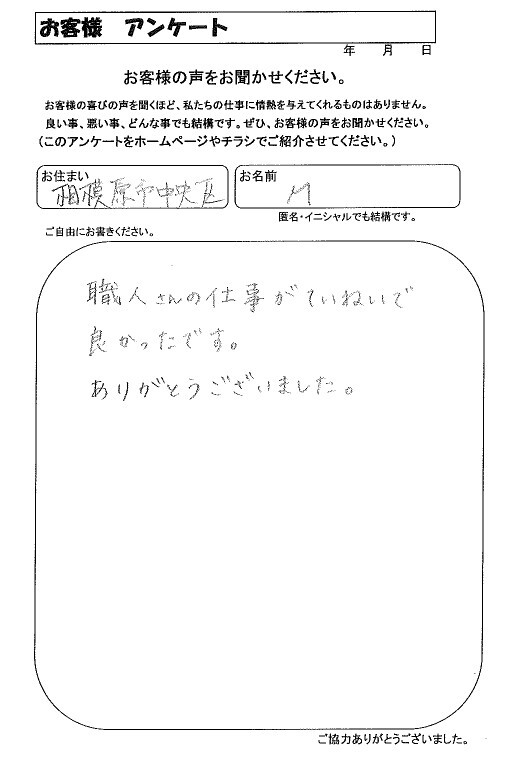 お客様 アンケート
年 月 日
お客様の声をお聞かせください。
お客様の喜びの声を聞くほど、私たちの仕事に情熱を与えてくれるものはありません。
良い事、悪い事、どんな事でも結構です。ぜひ、お客様の声をお聞かせください。
(このアンケートをホームページやチラシでご紹介させてください。)
お住まい
相模原市中央区
お名前
M
匿名・イニシャルでも結構です。
ご自由にお書きください。
職人さんの仕事がていねいで
良かったです。
ありがとうございました。
ご協力ありがとうございました。